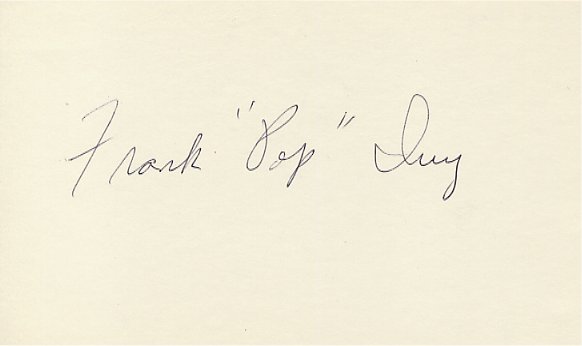 Frank "Pop" Ivy